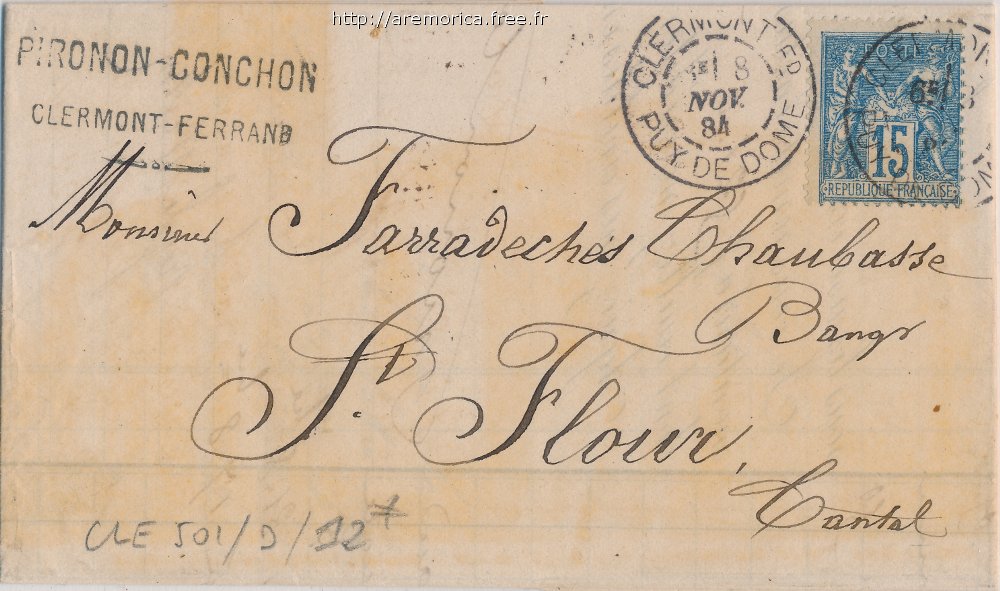 http://aremorica.free.fr
PIRONON-CONCHON
CLERMONT-FERRAND
CLERMONT-FD
8
NOV.
84
PUY DE DOME
15
REPUBLIQUE FRANÇAISE
Monsieur Farradeches Chaubasse
Banqr
St. Flour,
Cantal
CLE 501/D/12 *